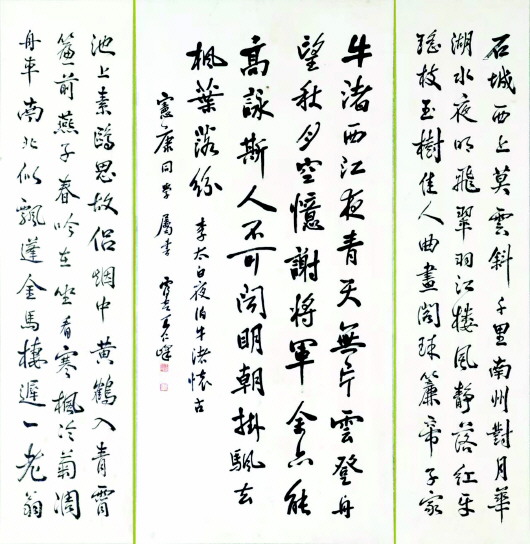 石城西上莫雲斜千里南州對月華
湖水夜明飛翠羽江樓風靜落紅牙
瑤枝玉樹佳人曲畫閣珠簾帝子家
牛渚西江夜青天無片雲登舟
望秋月空憶謝將軍余亦能
高詠斯人不可聞明朝掛颿去
楓葉落紛 李太白夜泊牛渚懷古
憲康同學屬書
池上素鷗思故侶烟中黃鶴入青霄
簷前燕子春吟在坐看寒楓冷菊凋
舟車南北似飄蓬金馬棲遲一老翁